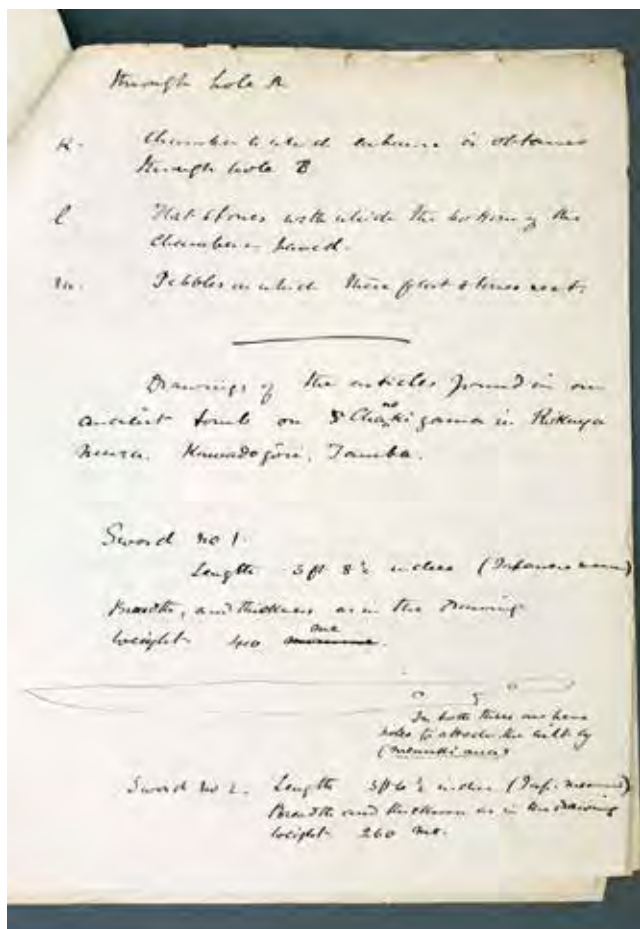 through hole A
K. Chamber to which entrance is obtained
through hole B
l Flat stones with which the bottom of the
Chamber is paved.
m. Pebbles on which these flat stones rest.
Drawings of the articles found in an
ancient tomb on in
mura. Kuwadagōri, Tamba.
Sword no 1.
Length 3 ft 8½ inches (Japanese meas)
Breadth, and thickness as in the Drawing
weight 410 me
In both these are
holes to attach the hilt by
(menuki ana)
Sword no 2. Length 3ft 6½ inches (Jap. meas)
Breadth and thickness as in the drawing
weight 260 me.